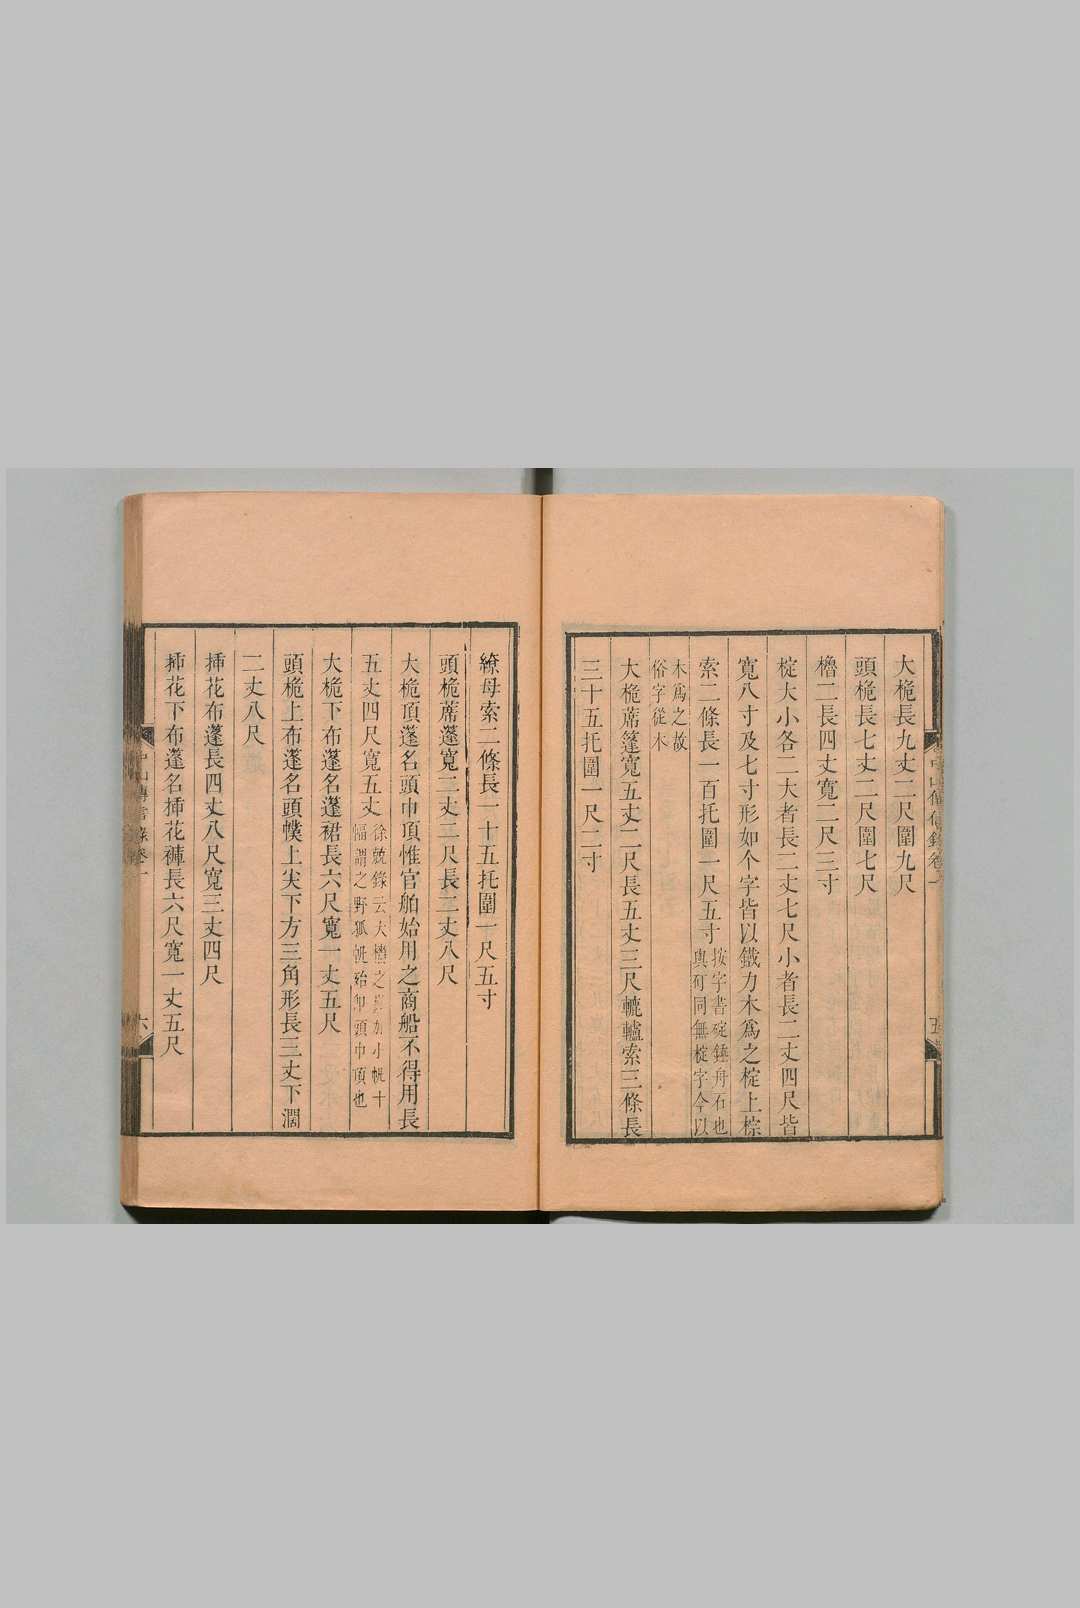 大桅長九丈二尺圍九尺
頭桅長七丈二尺圍七尺
櫓二長四丈寬二尺三寸
椗大小各二大者長二丈七尺小者長二丈四尺皆
寬八寸及七寸形如个字皆以鐵力木爲之椗上棕
索二條長一百托圍一尺五寸
按字書碇錘舟石也
與矴同無椗字今以
木爲之故
俗字從木
大桅蓆篷寬五丈二尺長五丈三尺轆轤索三條長
三十五托圍一尺二寸
五
繚母索二條長一十五托圍一尺五寸
頭桅蓆蓬寬二丈三尺長二丈八尺
大桅頂蓬名頭巾頂惟官舶始用之商船不得用長
五丈四尺寬五丈
徐兢錄云大檣之巔加小帆十
幅謂之野狐帆殆卽頭巾頂也
大桅下布蓬名蓬裙長六尺寬一丈五尺
頭桅上布蓬名頭幞上尖下方三角形長三丈下濶
二丈八尺
揷花布蓬長四丈八尺寬三丈四尺
揷花下布蓬名揷花褲長六尺寬一丈五尺
六